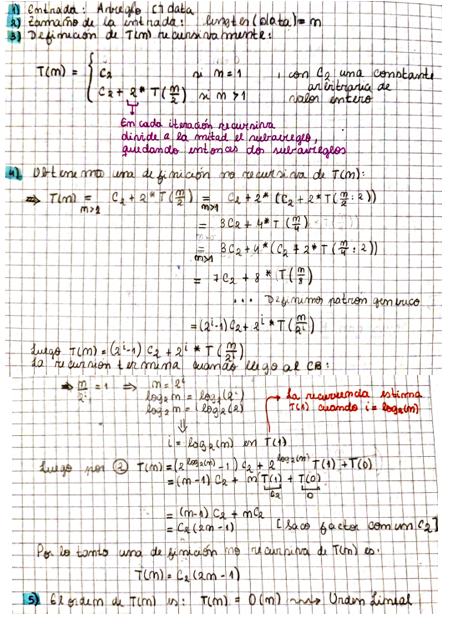 1) Entrada: Arreglo [] data
2) Tamaño de la entrada: length(data) = m
3) Definición de T(m) recursivamente:
T(m) = { C2 si m = 1 , con C2 una constante
arbitraria de
C2 + 2* T(m/2) si m > 1 valor entero
En cada iteración recursiva
divide a la mitad el subarreglo,
quedando entonces dos subarreglos
4) Obtenemos una definición no recursiva de T(m):
⇒ T(m) =_{m>1} C2 + 2* T(m/2) =_{m>1} C2 + 2* (C2 + 2* T(m/2 : 2))
= 3C2 + 4* T(m/4)
=_{m>1} 3C2 + 4* (C2 + 2* T(m/4 : 2))
= 7C2 + 8* T(m/8)
... Definimos patrón generico
= (2^i - 1) C2 + 2^i * T(m/2^i)
Luego T(m) = (2^i - 1) C2 + 2^i * T(m/2^i)
La recursión termina cuando llego al CB:
⇒ m/2^i = 1 ⇒ m = 2^i
log2 m = log2(2^i)
log2 m = i log2(2)
⇓
i = log2(m) en T(1)
→ La recurrencia estima
T(1) cuando i = log2(m)
Luego por ② T(m) = (2^{log2(m)} - 1) C2 + 2^{log2(m)} T(1) + T(0)
= (m-1) C2 + m T(1) + T(0)
C2 0
= (m-1) C2 + mC2
= C2 (2m - 1) [Saco factor común C2]
Por lo tanto una definición no recursiva de T(m) es:
T(m) = C2 (2m - 1)
5) El orden de T(m) es: T(m) = O(m) ⟿ Orden Lineal